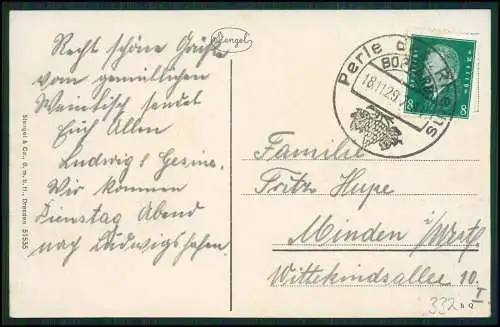 Stengel
Recht schöne Grüße
vom gemütlichen
Weintisch sendet
Euch Allen
Ludwig & Gesine.
Wir kommen
Dienstag Abend
nach Ludwigshafen.
Stengel & Co., G. m. b. H., Dresden 51535
Perle des Rheins
BOPPARD
18.11.29
8 8
Familie
Fritz Hupe
Minden i/Westf.
Wittekindsallee 10.
I.
332